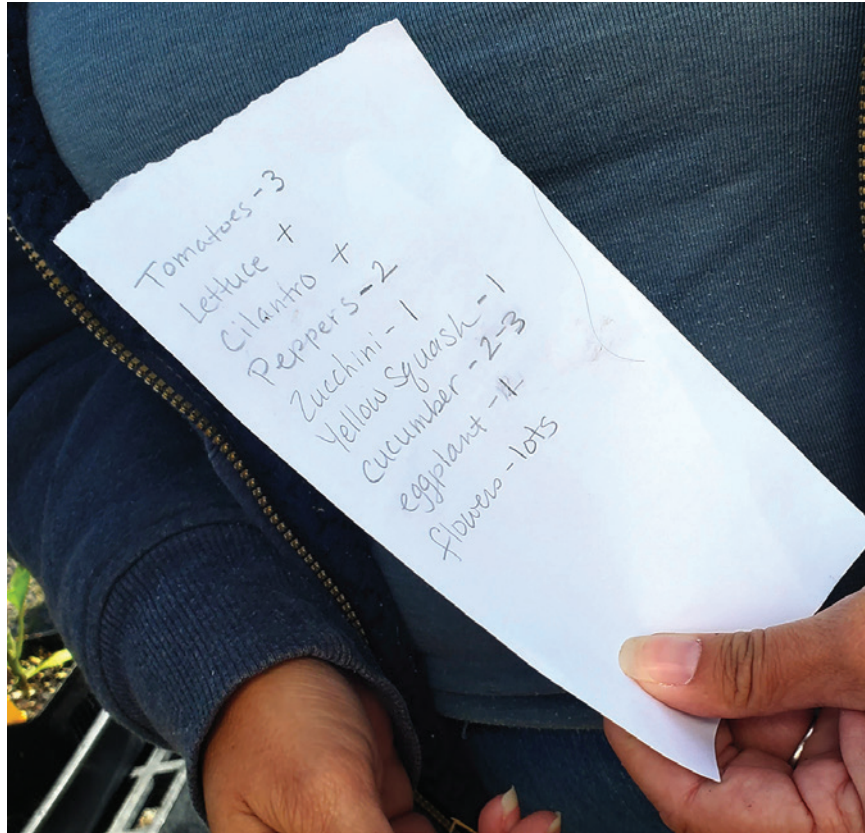 Tomatoes - 3
Lettuce +
Cilantro +
Peppers - 2
Zucchini - 1
Yellow Squash - 1
Cucumber - 2-3
eggplant -
flowers - lots